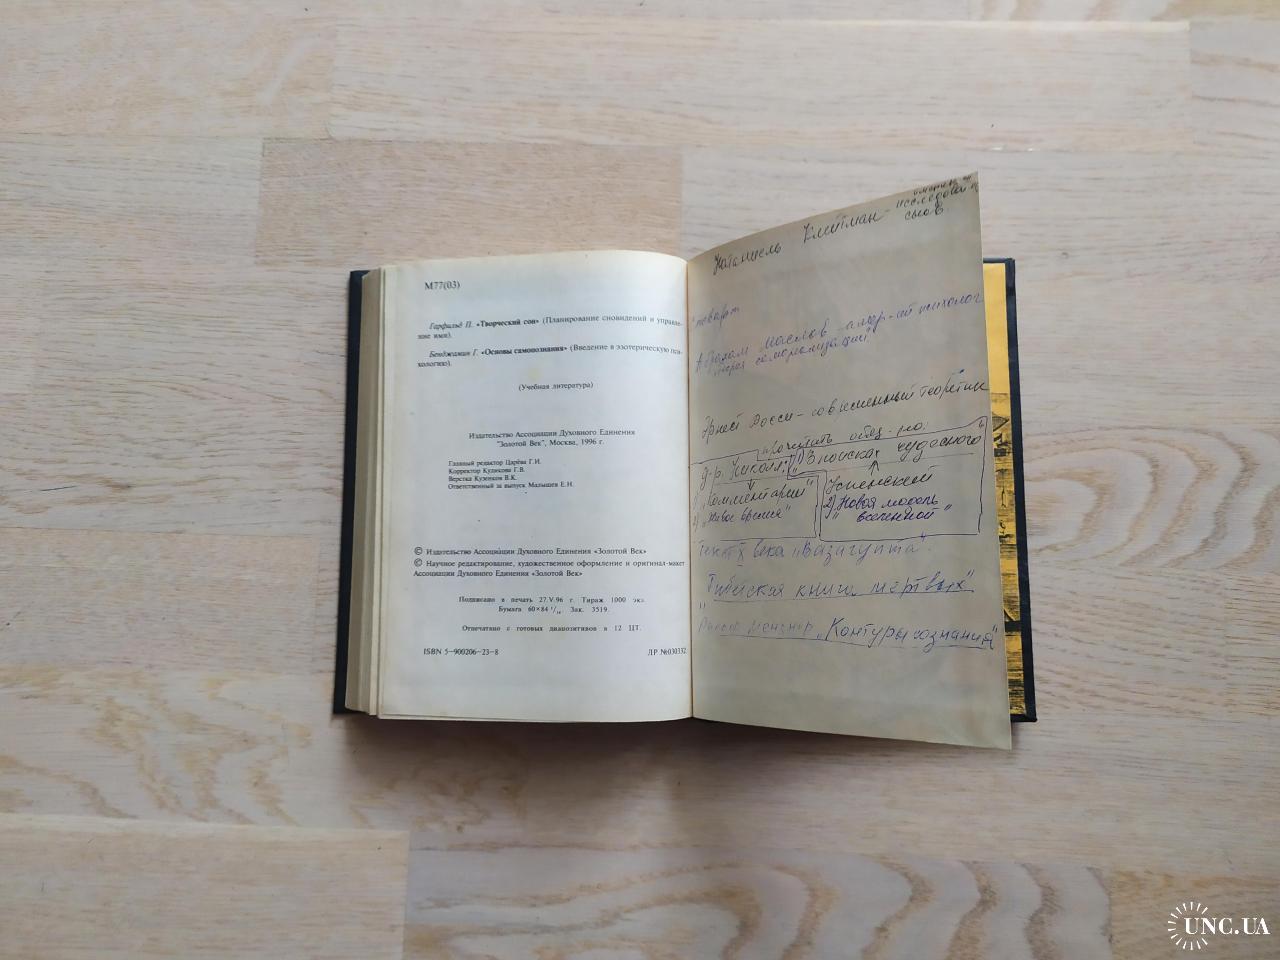 М77(03)
Гарфильд П. «Творческий сон» (Планирование сновидений и управле-
ние ими).
Бенджамин Г. «Основы самопознания» (Введение в эзотерическую пси-
хологию).
(Учебная литература)
Издательство Ассоциации Духовного Единения
"Золотой Век", Москва, 1996 г.
Главный редактор Царёва Г.И.
Корректор Куликова Г.В.
Верстка Кузенков В.К.
Ответственный за выпуск Малышев Е.Н.
© Издательство Ассоциации Духовного Единения «Золотой Век»
© Научное редактирование, художественное оформление и оригинал-макет
Ассоциации Духовного Единения «Золотой Век»
Подписано в печать 27.V.96 г. Тираж 1000 экз.
Бумага 60×84 1/16. Зак. 3519.
Отпечатано с готовых диапозитивов в 12 ЦТ.
ISBN 5—900206—23—8 ЛР №030332
Натаниель Клейтман -
исследова
снов
Абрахам Маслов амер-ий психолог
самореализации"
Эрнест Росси - современный теоретик
прочитать обяз-но:
"В поисках чудесного"
Успенский
2) Новая модель
"вселенной"
д-р. Николл:
1) "Комментарии"
2) "Живое время"
Текст X века "Вазигупта".
"Тибетская книга мертвых"
"Контуры сознания"
UNC.UA